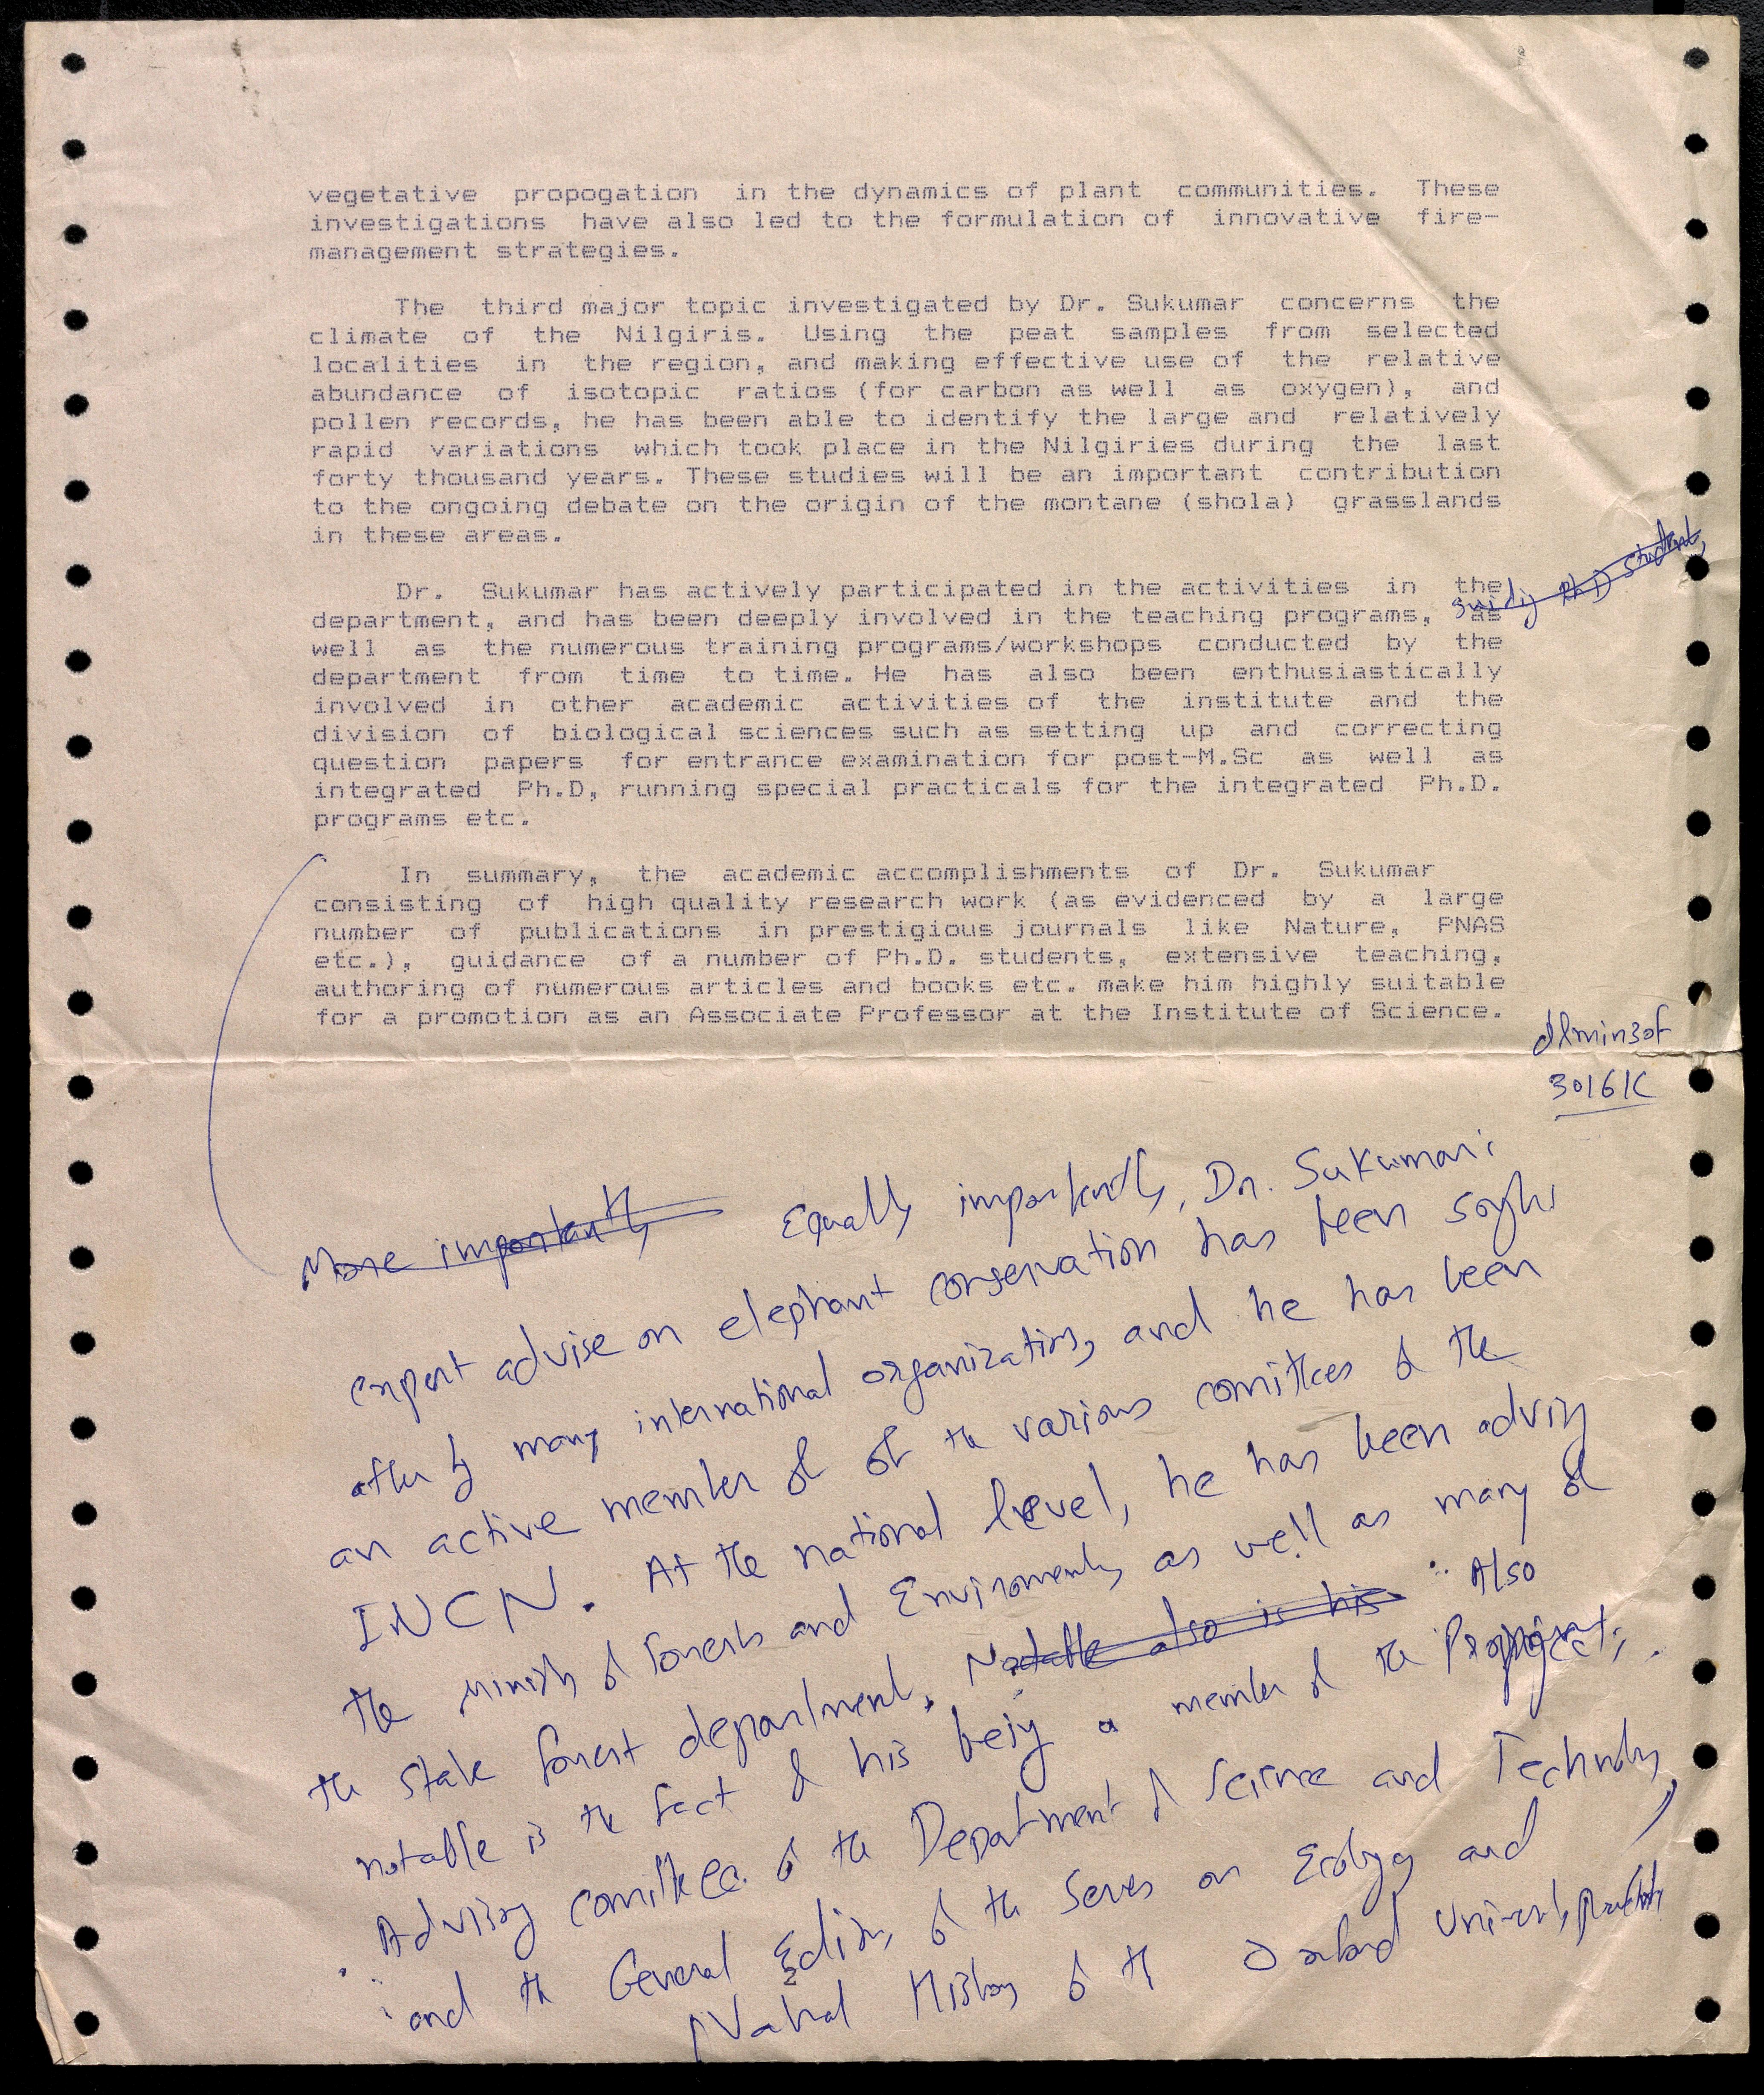 vegetative propogation in the dynamics of plant communities. These
investigations have also led to the formulation of innovative fire-
management strategies.
The third major topic investigated by Dr. Sukumar concerns the
climate of the Nilgiris. Using the peat samples from selected
localities in the region, and making effective use of the relative
abundance of isotopic ratios (for carbon as well as oxygen), and
pollen records, he has been able to identify the large and relatively
rapid variations which took place in the Nilgiries during the last
forty thousand years. These studies will be an important contribution
to the ongoing debate on the origin of the montane (shola) grasslands
in these areas.
Dr. Sukumar has actively participated in the activities in the
Ph D student,
department, and has been deeply involved in the teaching programs, as
well as the numerous training programs/workshops conducted by the
department from time to time. He has also been enthusiastically
involved in other academic activities of the institute and the
division of biological sciences such as setting up and correcting
question papers for entrance examination for post-M.Sc as well as
integrated Ph.D, running special practicals for the integrated Ph.D.
programs etc.
In summary, the academic accomplishments of Dr. Sukumar
consisting of high quality research work (as evidenced by a large
number of publications in prestigious journals like Nature, PNAS
etc.), guidance of a number of Ph.D. students, extensive teaching,
authoring of numerous articles and books etc. make him highly suitable
for a promotion as an Associate Professor at the Institute of Science.
More importantly Equally importantly, Dr. Sukumar's
expert advise on elephant conservation has been sought
after by many international organizations, and he has been
an active member of of the various comittees of the
IUCN. At the national level, he has been advising
the Ministry of Forests and Environments, as well as many of
the state forest department. Notable also is his Also
notable is the fact of his being a member of the
Advisory comittee of the Department of Science and Technology,
and the General Editor, of the Series on Ecology and
Natural History of the Oxford University press